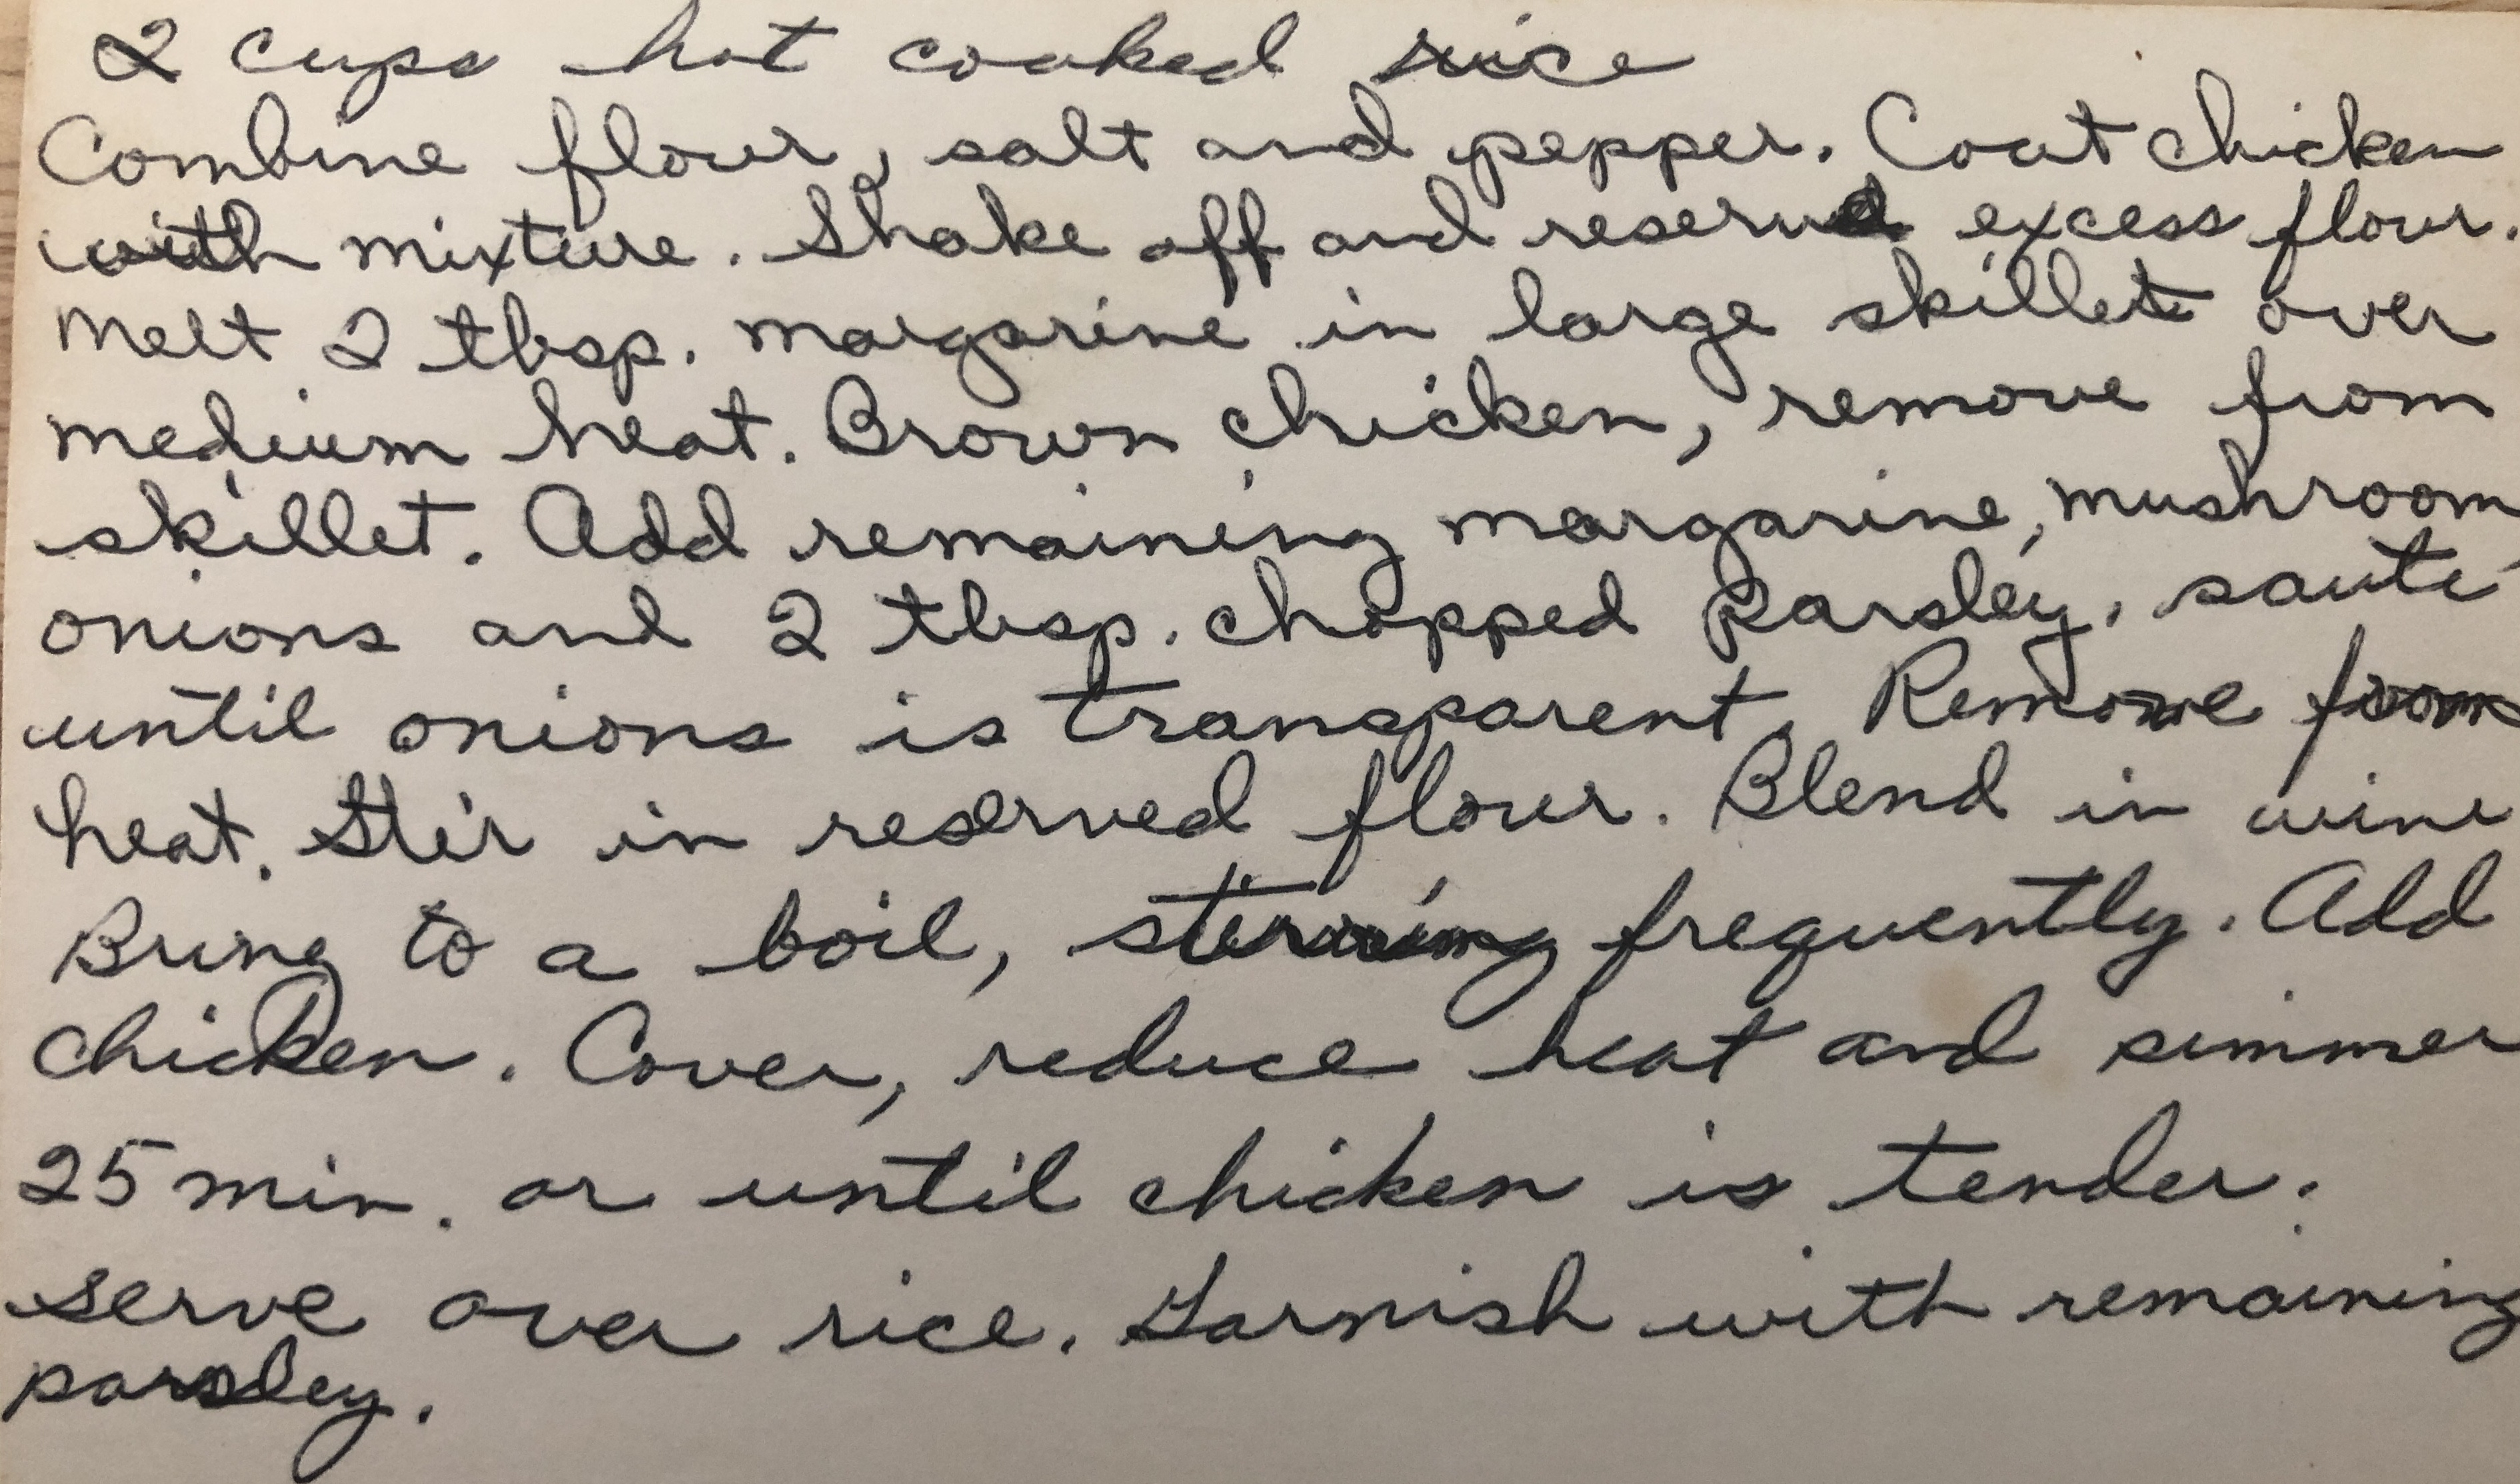 2 cups hot cooked rice
Combine flour, salt and pepper. Coat chicken
with mixture. Shake off and reserved excess flour.
Melt 2 tbsp. margarine in large skillet over
medium heat. Brown chicken, remove from
skillet. Add remaining margarine, mushroom
onions and 2 tbsp. chopped parsley, saute
until onions is transparent. Remove from
heat. Stir in reserved flour. Blend in wine
Bring to a boil, stirring frequently. Add
chicken. Cover, reduce heat and simmer
25 min. or until chicken is tender.
Serve over rice. Garnish with remaining
parsley.